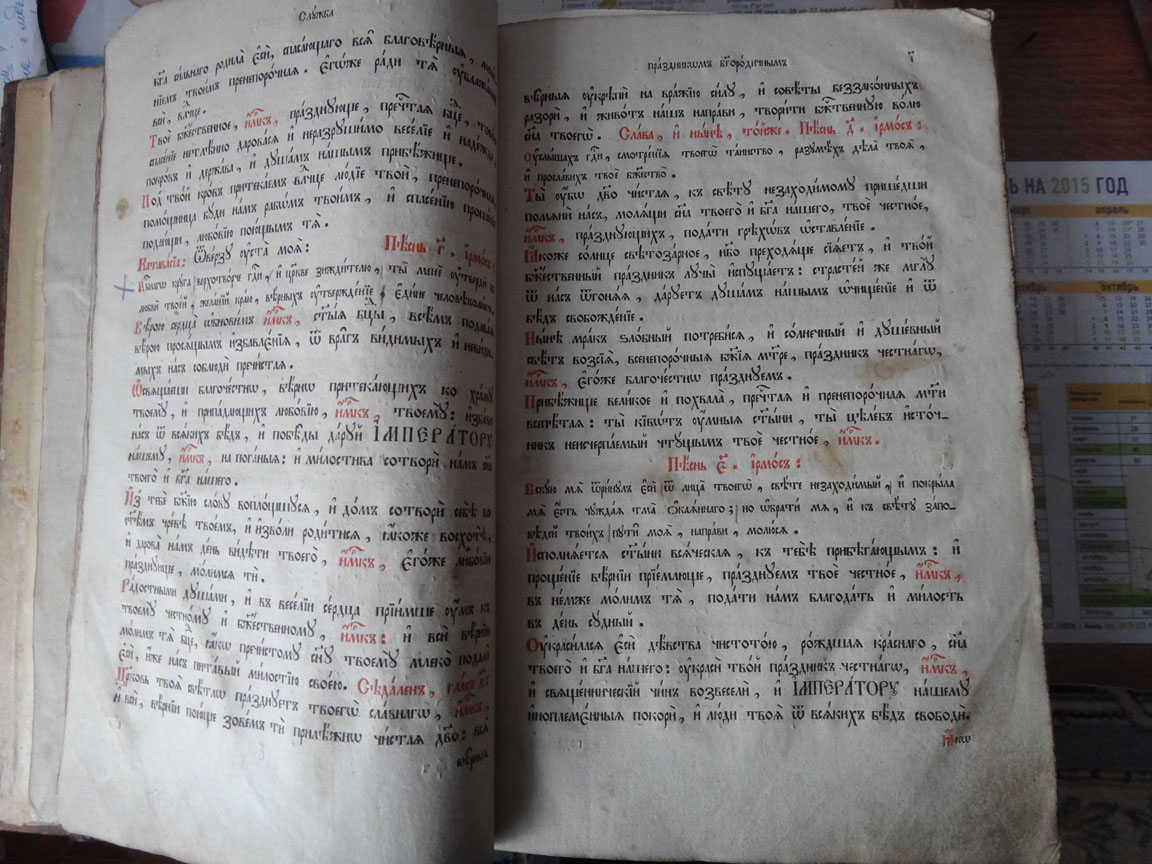 Слꙋжба
бг҃а сильнаго родила є҆сѝ, спаса́ющаго всѧ̑ благовѣ́рныѧ,
нїемъ твои́мъ пренепоро́чнаѧ. Є҆гѡ́же ра́ди тѧ̀ ᲂу҆блажа́емъ
всѝ, влⷣчце.
Твоѐ бж҃е́ственное, и҆́мⷬ҇къ, пра́зднꙋюще, пречⷭ҇таѧ бцⷣе,
спасе́нїе нетлѣ́нно дарова́сѧ и҆ неразрꙋши́мо весе́лїе и҆ наде́жда,
покро́въ и҆ держа́ва, и҆ дꙋша́мъ на́шымъ прибѣ́жище.
Под̾ тво́й кро́въ притека́емъ влⷣчце лю́дїе твоѝ, пренепоро́чнаѧ
помо́щница бꙋ́ди на́мъ рабѡ́мъ твои̑мъ, и҆ спасе́нїю проше́нїѧ
подаю́щи, любо́вїю пою́щымъ тѧ̀.
Пѣ́снь г҃. і҆рмо́съ:
Катава́сїа: Ѿве́рзꙋ ᲂу҆ста̀ моѧ̑:
Нбⷭ҇нагѡ крꙋ́га верхотво́рче гдⷭ҇и, и҆ цр҃кве зижди́телю, ты̀ менѐ ᲂу҆твердѝ въ
любвѝ твое́й, жела́нїй кра́ю, вѣ́рныхъ ᲂу҆твержде́нїе, є҆ди́не человѣколю́бче.
Вѣ́рою сердца̀ ѡ҆бнови́мъ и҆́мⷬ҇къ, ст҃ы́ѧ бцⷣы, всѣ́мъ подаѧ̀
вѣ́рою прося́щымъ и҆збавле́нїѧ, ѿ вра̑гъ ви́димыхъ и҆ неви́ди-
мыхъ на́съ соблюдѝ пречи́стаѧ.
Ѡ҆свѧща́ѧши благоче́стнѡ, вѣ́рнѡ притека́ющихъ ко хра́мꙋ
твоемꙋ̀, и҆ припа́дающихъ любо́вїю, и҆́мⷬ҇къ, твоемꙋ̀: и҆зба́ви
на́съ ѿ всѧ́кихъ бѣ́дъ, и҆ побѣ́ды да́рꙋй І҆МПЕРА́ТОРꙊ
на́шемꙋ, и҆́мⷬ҇къ, на пога̑ныѧ: и҆ ми́лостива сотворѝ на́мъ сн҃а
твоего̀ и҆ бг҃а на́шего.
И҆з̾ тебѐ бж҃їю сло́вꙋ вопло́щшꙋсѧ, и҆ до́мъ сотворѝ себѣ̀ во
ст҃ѣ́мъ чре́вѣ твое́мъ, и҆ и҆зво́ли роди́тисѧ, ꙗ҆́коже восхотѣ̀,
и҆ дарова̀ на́мъ де́нь ви́дѣти твоегѡ̀, и҆́мⷬ҇къ, є҆го́же любо́вїю
пра́зднꙋюще, мо́лимсѧ тѝ.
Ра́достными дꙋша́ми, и҆ въ весе́лїи се́рдца прїими́ше ᲂу҆́мъ къ
твоемꙋ̀ че́стномꙋ и҆ бж҃е́ственномꙋ, и҆́мⷬ҇къ: и҆ всѝ вѣ́рнїи
мо́лимъ тѧ̀ бцⷣе, ꙗ҆́кѡ пречи́стомꙋ сн҃ꙋ твоемꙋ̀ млеко̀ подаѧ̀
є҆сѝ, и҆́же на́съ пита́вый ми́лостїю свое́ю. Сѣда́ленъ, гла́съ
Цр҃ковь твоѧ̀ свѣ́тлѡ пра́зднꙋетъ твоегѡ̀ сла́внагѡ, и҆́мⷬ҇къ,
и҆ всѝ, вѣ́рнїи пою́ще зове́мъ тѝ прилѣ́жнѡ чи́стаѧ дв҃о: всѧ̑
вѣ̑рныѧ
пра́здникѡмъ бг҃оро́дичнымъ
г҃
вѣ̑рныѧ ᲂу҆крѣпѝ на вра́жїю си́лꙋ, и҆ совѣ́ты беззако́нныхъ
разорѝ, и҆ живо́тъ на́шъ напра́ви, твори́ти бж҃е́ственнꙋю во́лю
сн҃а твоегѡ̀. Сла́ва, и҆ ны́нѣ, то́йже. Пѣ́снь д҃. і҆рмо́съ:
Оу҆слы́шахъ гдⷭ҇и, смотре́нїѧ твоегѡ̀ та́инство, разꙋмѣ́хъ дѣла̀ твоѧ̑,
и҆ просла́вихъ твоѐ бж҃ество̀.
Ты̀ ᲂу҆̀бѡ дв҃о чи́стаѧ, къ свѣ́тꙋ незаходи́момꙋ прише́дши
помѧнѝ на́съ, молѧ́щи сн҃а твоего̀ и҆ бг҃а на́шего, твоѐ че́стное,
и҆́мⷬ҇къ, пра́зднꙋющихъ, пода́ти грѣхѡ́въ ѡ҆ставле́нїе.
Ꙗ҆́коже со́лнце свѣтоза́рное, и҆́бо преходѧ́ще сїѧ́етъ, и҆ тво́й
бж҃е́ственный пра́здникъ лꙋчы̀ и҆спꙋща́етъ: страсте́й же мглꙋ̀
ѿ на́съ ѿгонѧ́ѧ, да́рꙋетъ дꙋша́мъ на́шымъ ѡ҆чище́нїе и҆ ѿ
бѣ́дъ свобожде́нїе.
Ны́нѣ мра́къ ѕло́бный потреби́сѧ, и҆ со́лнечный и҆ дꙋше́вный
свѣ́тъ возсїѧ̀, всенепоро́чныѧ бж҃їѧ мт҃ре, пра́здникъ че́стнагѡ,
и҆́мⷬ҇къ, є҆го́же благоче́стнѡ пра́зднꙋемъ.
Прибѣ́жище вели́кое и҆ похвала̀, пречⷭ҇таѧ и҆ пренепоро́чнаѧ мт҃и
всепѣ́таѧ: ты̀ кївѡ́тъ ᲂу҆́мныѧ ст҃ы́ни, ты̀ цѣле́бъ и҆сто́ч-
никъ неисчерпа́емый чтꙋ́щымъ твоѐ че́стное, и҆́мⷬ҇къ.
Пѣ́снь є҃. і҆рмо́съ:
Вскꙋ́ю мѧ̀ ѿри́нꙋлъ є҆сѝ ѿ лица̀ твоегѡ̀, свѣ́те незаходи́мый, и҆ покры́ла
мѧ̀ є҆́сть чꙋжда́ѧ тма̀ ѻ҆каѧ́ннаго; но ѡ҆брати́ мѧ, и҆ къ свѣ́тꙋ за́по-
вѣдїй твои́хъ пꙋти̑ моѧ̑, напра́ви, молю́сѧ.
И҆сполнѧ́етсѧ ст҃ы́ни всѧ́ческаѧ, къ тебѣ̀ прибѣга́ющымъ: и҆
проше́нїе вѣ́рнїи прїе́млюще, пра́зднꙋемъ твоѐ че́стное, и҆́мⷬ҇къ,
въ не́мже мо́лимъ тѧ̀, пода́ти на́мъ благода́ть и҆ ми́лость
въ де́нь сꙋ́дный.
Оу҆краси́ласѧ є҆сѝ дѣ́вства чистото́ю, ро́ждшаѧ кра́снаго, сн҃а
твоего̀ и҆ бг҃а на́шего: ᲂу҆красѝ тво́й пра́здникъ че́стнагѡ, и҆́мⷬ҇къ,
и҆ свѧще́нническїй чи́нъ возвеселѝ, и҆ І҆МПЕРА́ТОРꙊ на́шемꙋ
и҆ноплеме́нныѧ покорѝ, и҆ лю́ди твоѧ̑ ѿ всѧ́кихъ бѣ́дъ свободѝ.
Ꙗ҆́кѡ
НА 2015 ГОД
март
апрель
октябрь